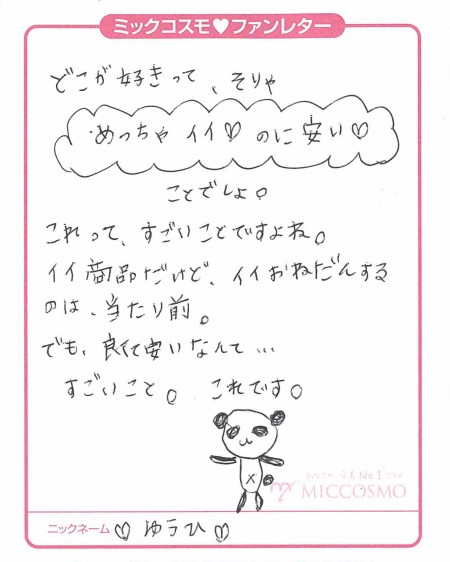 ミックコスモ♥ファンレター
どこが好きって、そりゃ
めっちゃイイ♡のに安い♡
ことでしょ。
これって、すごいことですよね。
イイ商品だけど、イイおねだんする
のは、当たり前。
でも、良くて安いなんて…
すごいこと。これです。
No.1
MICCOSMO
ニックネーム ♡ゆうひ♡